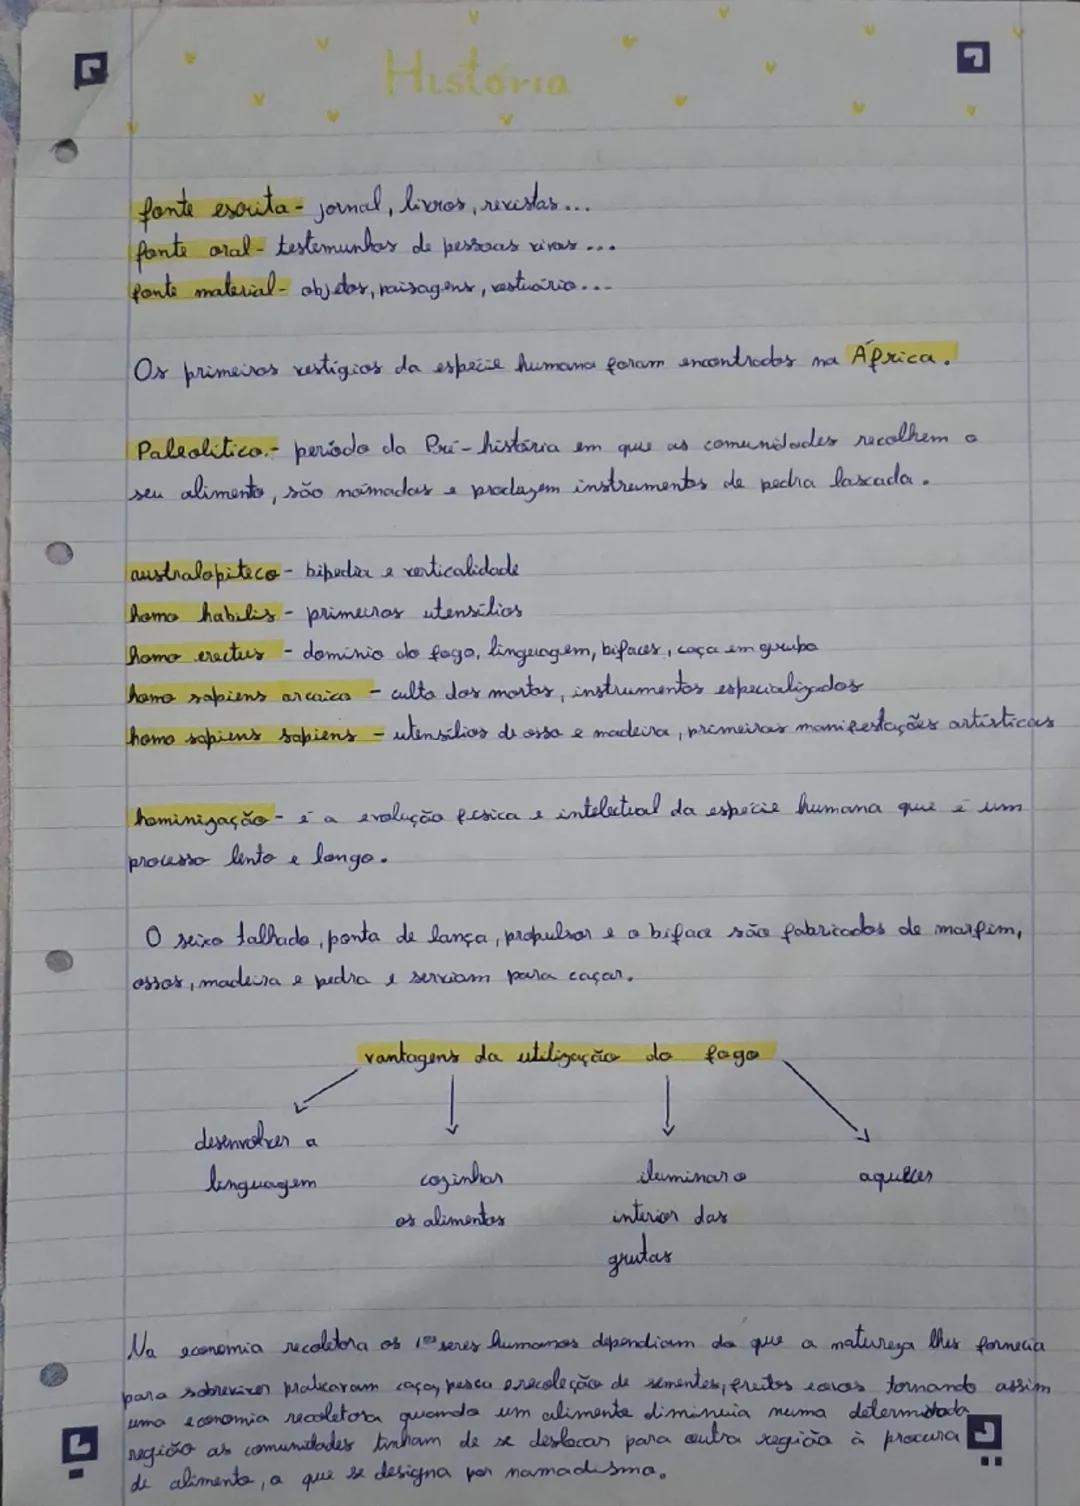 História
fonte escrita - jornal, livros, revistas...
fonte oral - testemunhos de pessoas vivas...
fonte material - objetos, paisagens, vestuário...
Os primeiros vestígios da espécie humana foram encontrados na África.
Paleolítico - período da Pré-história em que as comunidades recolhem o
seu alimento, são nómadas e produzem instrumentos de pedra lascada.
australopiteco - bipedia e verticalidade
homo habilis - primeiros utensílios
homo erectus - domínio do fogo, linguagem, bifaces, caça em grupo
homo sapiens arcaico - culto dos mortos, instrumentos especializados
homo sapiens sapiens - utensílios de osso e madeira, primeiras manifestações artísticas
hominização - é a evolução física e intelectual da espécie humana que é um
processo lento e longo.
O seixo talhado, ponta de lança, propulsor e o biface são fabricados de marfim,
ossos, madeira e pedra e serviam para caçar.
vantagens da utilização do fogo
desenvolver a
linguagem
cozinhar
os alimentos
iluminar o
interior das
grutas
aquecer
Na economia recoletora os 1ºs seres humanos dependiam do que a natureza lhes fornecia
para sobreviver praticavam caça, pesca e recoleção de sementes, frutos e ovos tornando assim
uma economia recoletora quando um alimento diminuia numa determinada
região as comunidades tinham de se deslocar para outra região à procura
de alimento, o que se designa por nomadismo.